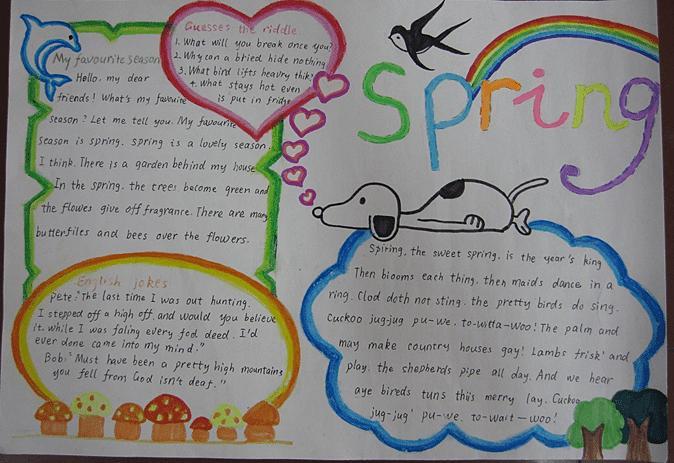 My favourite season
Hello, my dear
friends! What's my favuire
season? Let me tell you. My favourite
season is spring. spring is a lovely season.
I think. There is a garden behind my house
In the spring. the trees become green and
the flowes give off fragrance. There are many
butterfiles and bees over the flowers.
Guesses the riddle
1. What will you break once you?
2. Why can a bried hide nothing
3. What bird lifts heavry thik?
4. What stays hot even
is put in fridge
Spring
English jokes
Pete: "The last time I was out hunting.
I stepped off a high off. and would you believe
it. while I was faling every fod deed. I'd
ever done came into my mind."
Bob: "Must have been a pretty high mountains
you fell from God isn't deaf."
Spiring, the sweet spring. is the year's king
Then biooms each thing. then maids dance in a
ring. Clod doth not sting. the pretty birds do sing.
Cuckoo jug-jug pu-we. to-witta-woo! The palm and
may make country houses gay! Lambs frisk' and
play. the shepherds pipe all day. And we hear
aye bireds tuns this merry lay. Cuckoo
jug-jug' pu-we. to-wait-woo!